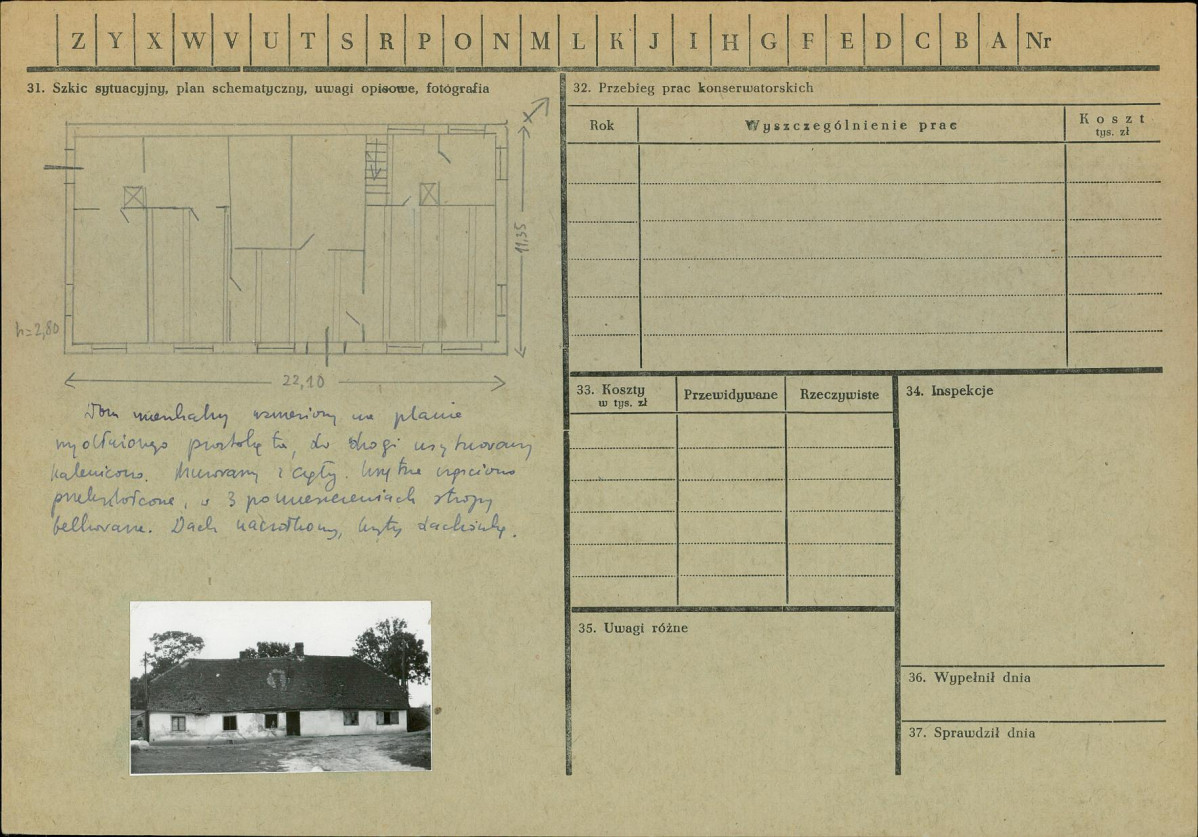 Z Y X W V U T S R P O N M L K J I H G F E D C B A Nr
31. Szkic sytuacyjny, plan schematyczny, uwagi opisowe, fotografia
11,35
h=2,80
22,10
Dom mieszkalny wzniesiony na planie
wydłużonego prostokąta, do drogi usytuowany
kalenicowo. Murowany z cegły. Wnętrze częściowo
przekształcone, w 3 pomieszczeniach stropy
belkowane. Dach naczółkowy, kryty dachówką.
32. Przebieg prac konserwatorskich
Rok
Wyszczególnienie prac
Koszt
tys. zł
33. Koszty
w tys. zł
Przewidywane
Rzeczywiste
34. Inspekcje
35. Uwagi różne
36. Wypełnił dnia
37. Sprawdził dnia